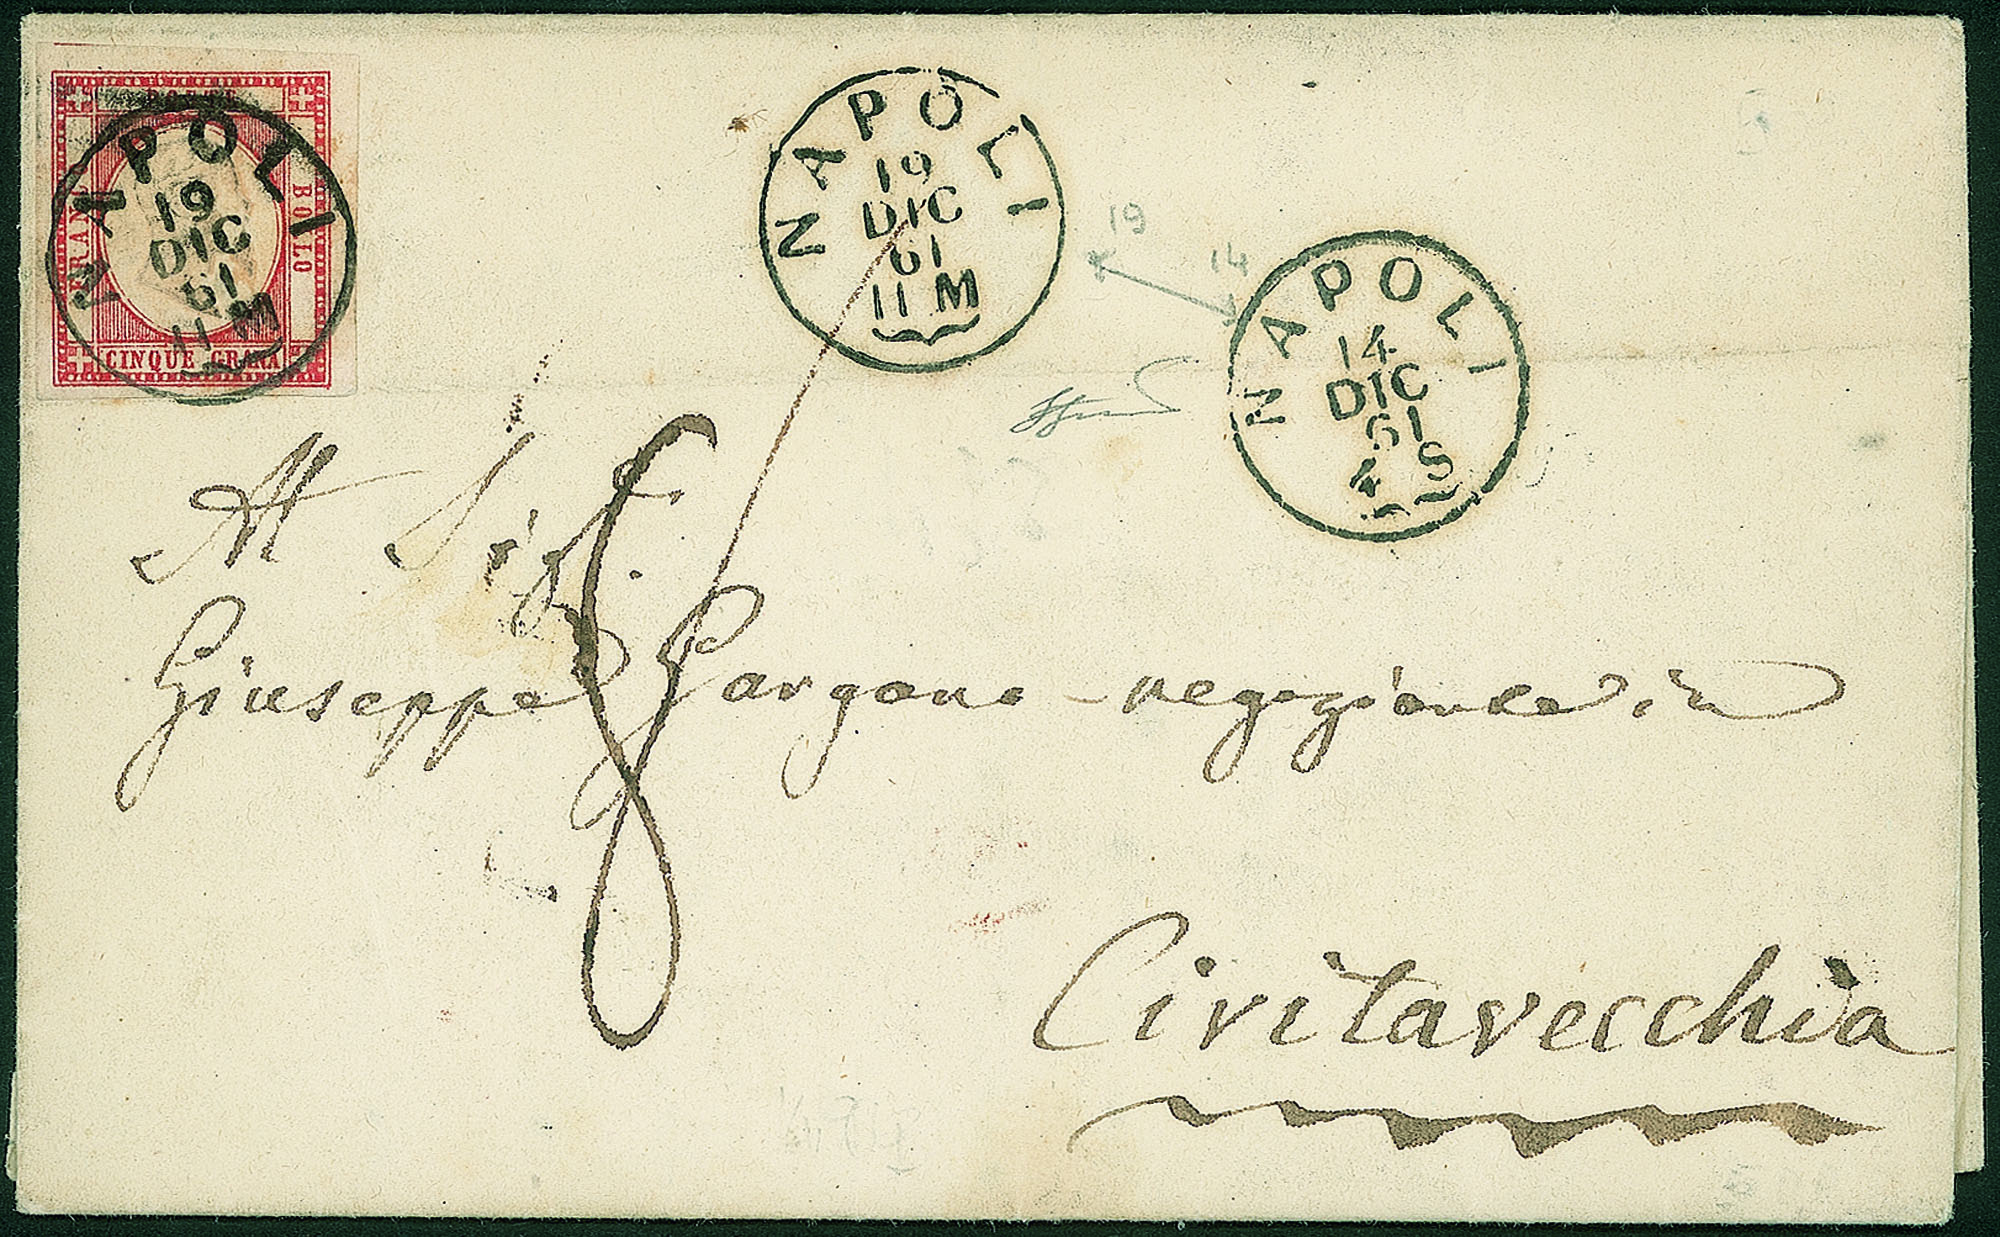 FRANCO BOLLO
CINQUE GRANA
NAPOLI
19
DIC
61
11 M
NAPOLI
19
DIC
61
11 M
19
14
NAPOLI
14
DIC
61
4 S
8
Al Sig.
Giuseppe negoziante in
Civitavecchia